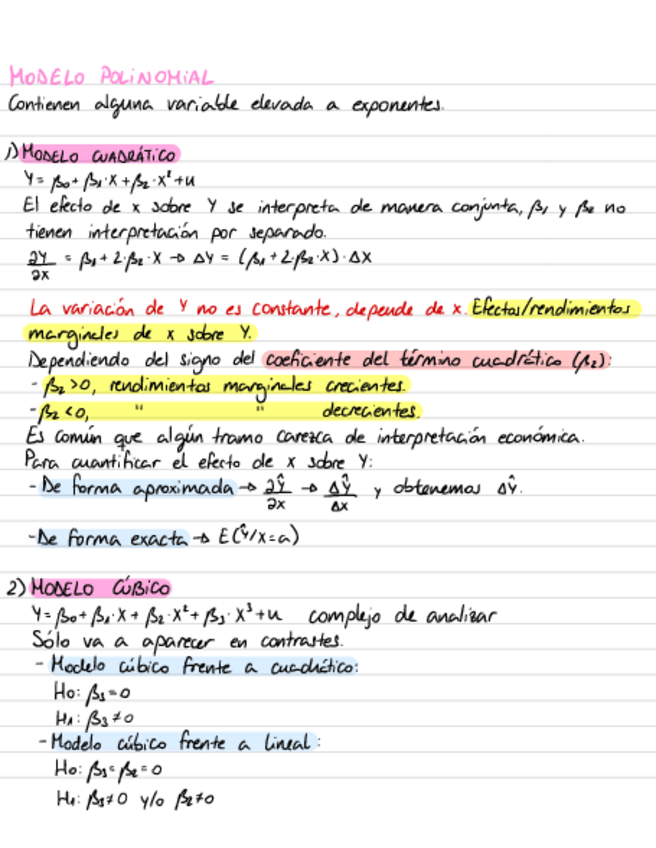 MODELO POLINOMIAL
Contienen alguna variable elevada a exponentes.
1) MODELO CUADRÁTICO
Y = β₀ + β₁·X + β₂·X² + u
El efecto de x sobre Y se interpreta de manera conjunta, β₁ y β₂ no
tienen interpretación por separado.
∂Y/∂X = β₁ + 2·β₂·X → ΔY = (β₁ + 2·β₂·X)·ΔX
La variación de Y no es constante, depende de x. Efectos/rendimientos
marginales de x sobre Y.
Dependiendo del signo del coeficiente del término cuadrático (β₂):
- β₂ > 0, rendimientos marginales crecientes.
- β₂ < 0, " " decrecientes.
Es común que algún tramo carezca de interpretación económica.
Para cuantificar el efecto de x sobre Y:
- De forma aproximada → ∂Ŷ/∂X → ΔŶ/ΔX y obtenemos ΔŶ.
- De forma exacta → E(Ŷ/X=a)
2) MODELO CÚBICO
Y = β₀ + β₁·X + β₂·X² + β₃·X³ + u complejo de analizar
Sólo va a aparecer en contrastes.
- Modelo cúbico frente a cuadrático:
H₀: β₃ = 0
H₁: β₃ ≠ 0
- Modelo cúbico frente a lineal:
H₀: β₃ = β₂ = 0
H₁: β₃ ≠ 0 y/o β₂ ≠ 0